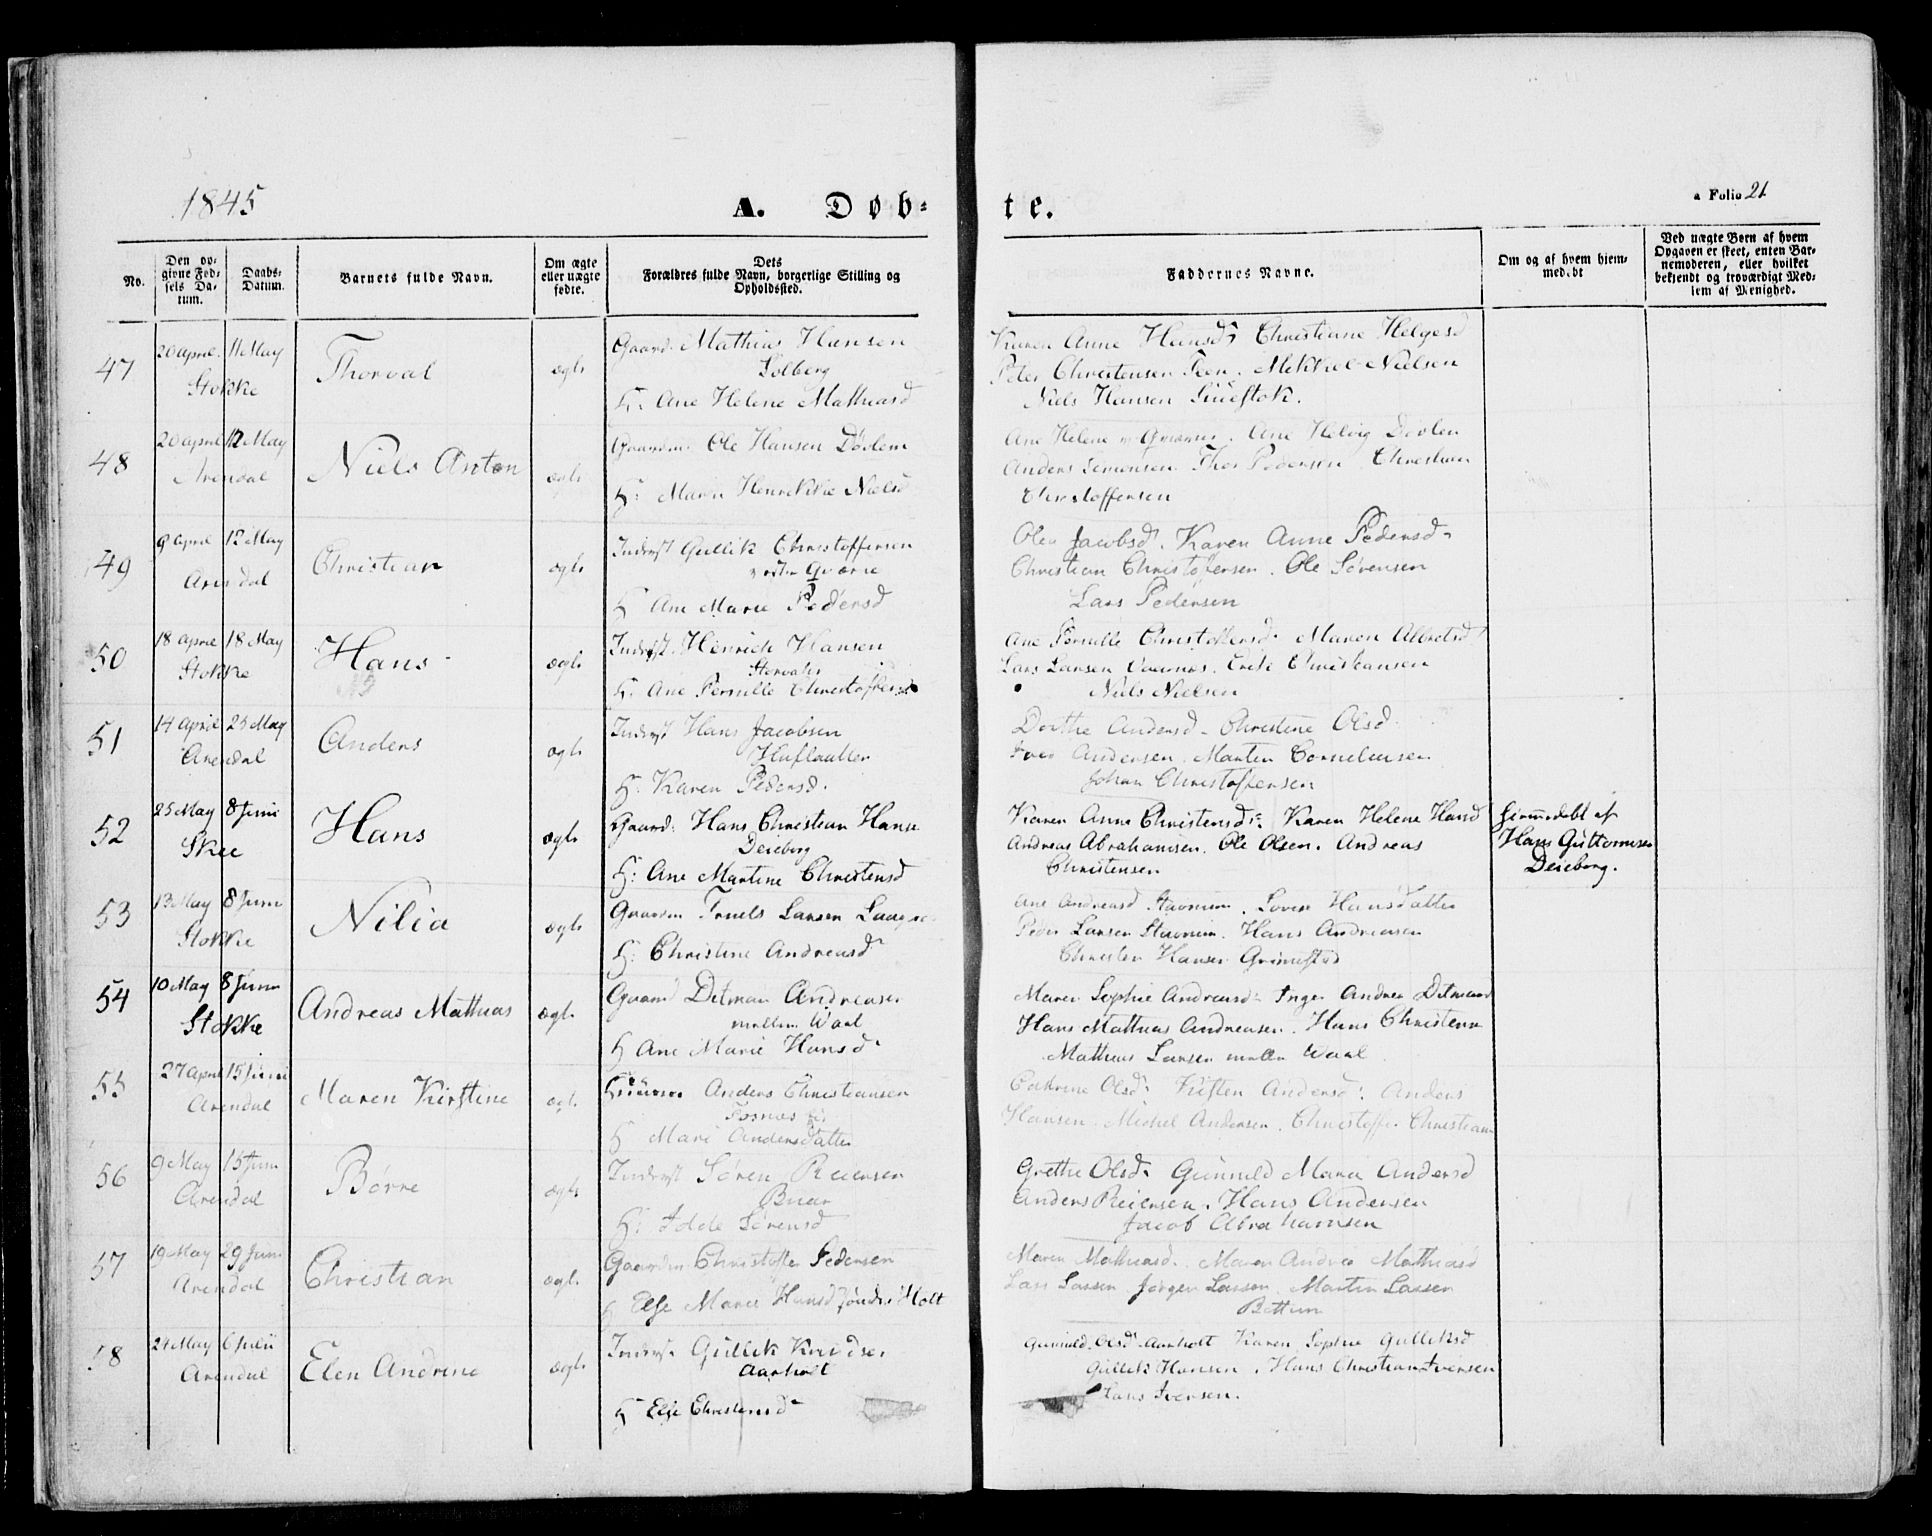 1845
A. Døb-
te.
a Folio 21
No.
Den op-
givne Fød-
sels Da-
tum.
Daabs-
Datum.
Barnets fulde Navn.
Om ægte
eller uægte
fødte.
Dets
Forældres fulde Navn, borgerlige Stilling og
Opholdssted.
Faddernes Navne.
Om og af hvem hjem-
medøbt
Ved uægte Børn af hvem
Opgaven er skeet, enten Bar-
nemoderen, eller hvilket
bekjendt og troværdigt Med-
lem af Menighed.
47
20 April 11 May
Stokke
Thorval
ægte
Gaard. Mathias Hansen
Solberg
H. Ane Helene Mathiasd
Karen Anne Hansd. Christiane Helgesd
Peter Christensen Feen. Mikkel Nielsen
Niels Hansen
48
20 April 12 May
Arendal
Niels Anton
ægte
Gaardm. Ole Hansen Døvlem
H: Maren Henrikke Nielsd
Ane Helene Qværne. Ane Helvig Dovlen
Anders Simonsen. Thor Pedersen. Christian
Christoffersen
49
9 April 12 May
Arendal
Christian
ægte
Inderst Gullik Christoffersen
vestre Qværne
H Ane Marie Pedersd
Olea Jacobsd. Karen Anne Pedersd.
Christian Christofersen. Ole Sørensen
Lars Pedersen
50
18 April 18 May
Stokke
Hans
ægte
Inderst. Henrich Hansen
Storevahr
H. Ane Pernille Christofersd
Ane Pernille Christoffersd. Maren Albretsd
Lars Larsen Erik Christiansen
Niels Nielsen
51
14 April 25 May
Arendal
Anders
ægte
Inderst Hans Jacobsen
Huflaatten
H. Karen Pedersd.
Dorthe Andersd. Christine Olsd.
Iver Andersen. Martin Corneliussen
Johan Christoffersen
52
25 May 8 Juni
Skee
Hans
ægte
Gaard: Hans Christian Hanse
Deieborg
H: Ane Martine Christensd
Karen Anne Christensd: Karen Helene Hansd
Andreas Abrahamsen. Ole Olsen. Andreas
Christensen
hjemmedøbt af
Hans Guttormsen
Deieborg.
53
13 May 8 Juni
Stokke
Nilia
ægte
Gaardm Truels Larsen
H: Christine Andreasd
Ane Andreasd Stavnum. Lovise Hansdatter
Peder Larsen Stavnum. Hans Andreasen
Christen Hansen Grimestad
54
10 May 8 Juni
Stokke
Andreas Mathias
ægte
Gaard Ditman Andreasen
mellem Waal
H Ane Marie Hansd
Maren Sophie Andreasd. Inger Andrea Ditmansd
Hans Mathias Andreasen. Hans Christensen
Mathias Larsen mellem Waal
55
27 April 15 Juni
Arendal
Maren Kirstine
ægte
Huusm. Anders Christiansen
Fosnæs
H Mari Andersdatter
Cathrine Olsd. Kristen Andersd: Anders
Hansen. Michel Andersen. Christoffer Christians
56
9 May 15 Juni
Arendal
Børre
ægte
Inderst Søren Reiersen
Buer
H: Adde Sørensd
Grethe Olsd. Gunnild Maria Andersd
Anders Reiersen. Hans Andersen
Jacob Abrahamsen
57
19 May 29 Juni
Arendal
Christian
ægte
Gaardm. Christoffer Pedersen
H Else Marie Hansd søndre Holt
Maren Mathiasd. Maren Andrea Mathiasd
Lars Larsen Jørgen Larsen. Martin Larsen
Bettum
58
24 May 6 Juli
Arendal
Elen Andrine
ægte
Inderst. Gullik Knudsen
Aarholt
H Else Christensd
Gunnild Olsd Aarholt Karen Sophie Gulliksd
Gullik Hansen. Hans Christian Iversen
Lars Iversen.